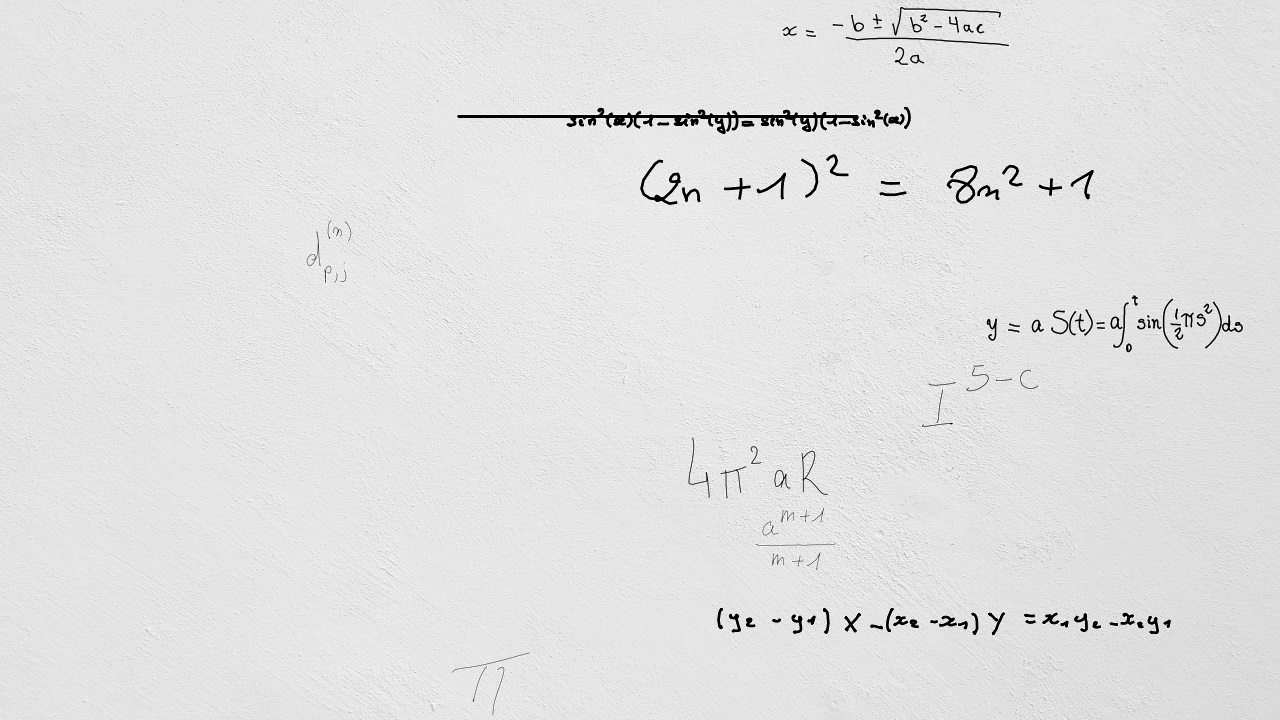 x = \frac{-b \pm \sqrt{b^2 - 4ac}}{2a}
sin²(x)(1-sin²(y))=sin²(y)(1-sin²(x))
(2n + 1)² = 8n² + 1
d_{p,j}^{(n)}
y = a S(t) = a\int_0^t sin(\frac{1}{2}πs²)ds
I^{5-c}
4π² a R
\frac{a^{m+1}}{m+1}
(y₂ - y₁) X - (x₂ - x₁) Y = x₁y₂ - x₂y₁
π